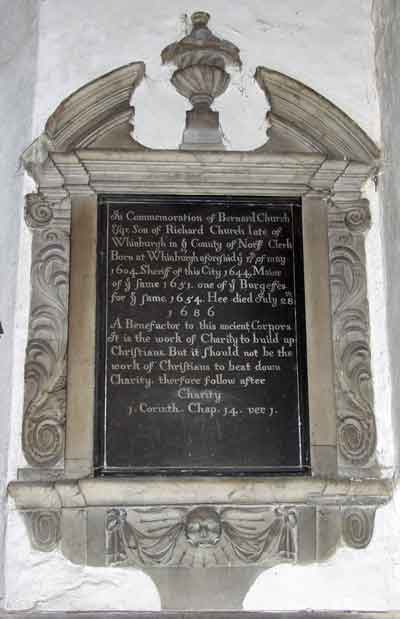 In Commemoration of Bernard Church
Esqr. Son of Richard Church late of
Whinburgh in yͤ County of Norff Clerk
Born at Whinburgh aforesaid yͤ 1ſt of may
1604, Sheriff of this City 1644, Maior
of yͤ same 1651. one of yͤ Burgeſſes
for yͤ same, 1654. Hee died July 28th
1686
A Benefactor to this ancient Corpora
It is the work of Charity to build up
Chriſtians. But it ſhould not be the
work of Chriſtians to beat down
Charity, therfore follow after
Charity
1. Corinth. Chap. 14. ver 1.